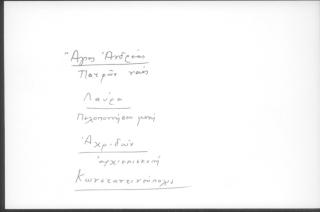 "Ἅγιος Ἀνδρέας
Πατρῶν ναός
Λαύρα
Πελοποννήσου μονή
Ἀχριδῶν
ἀρχιεπισκοπή
Κωνσταντινούπολις